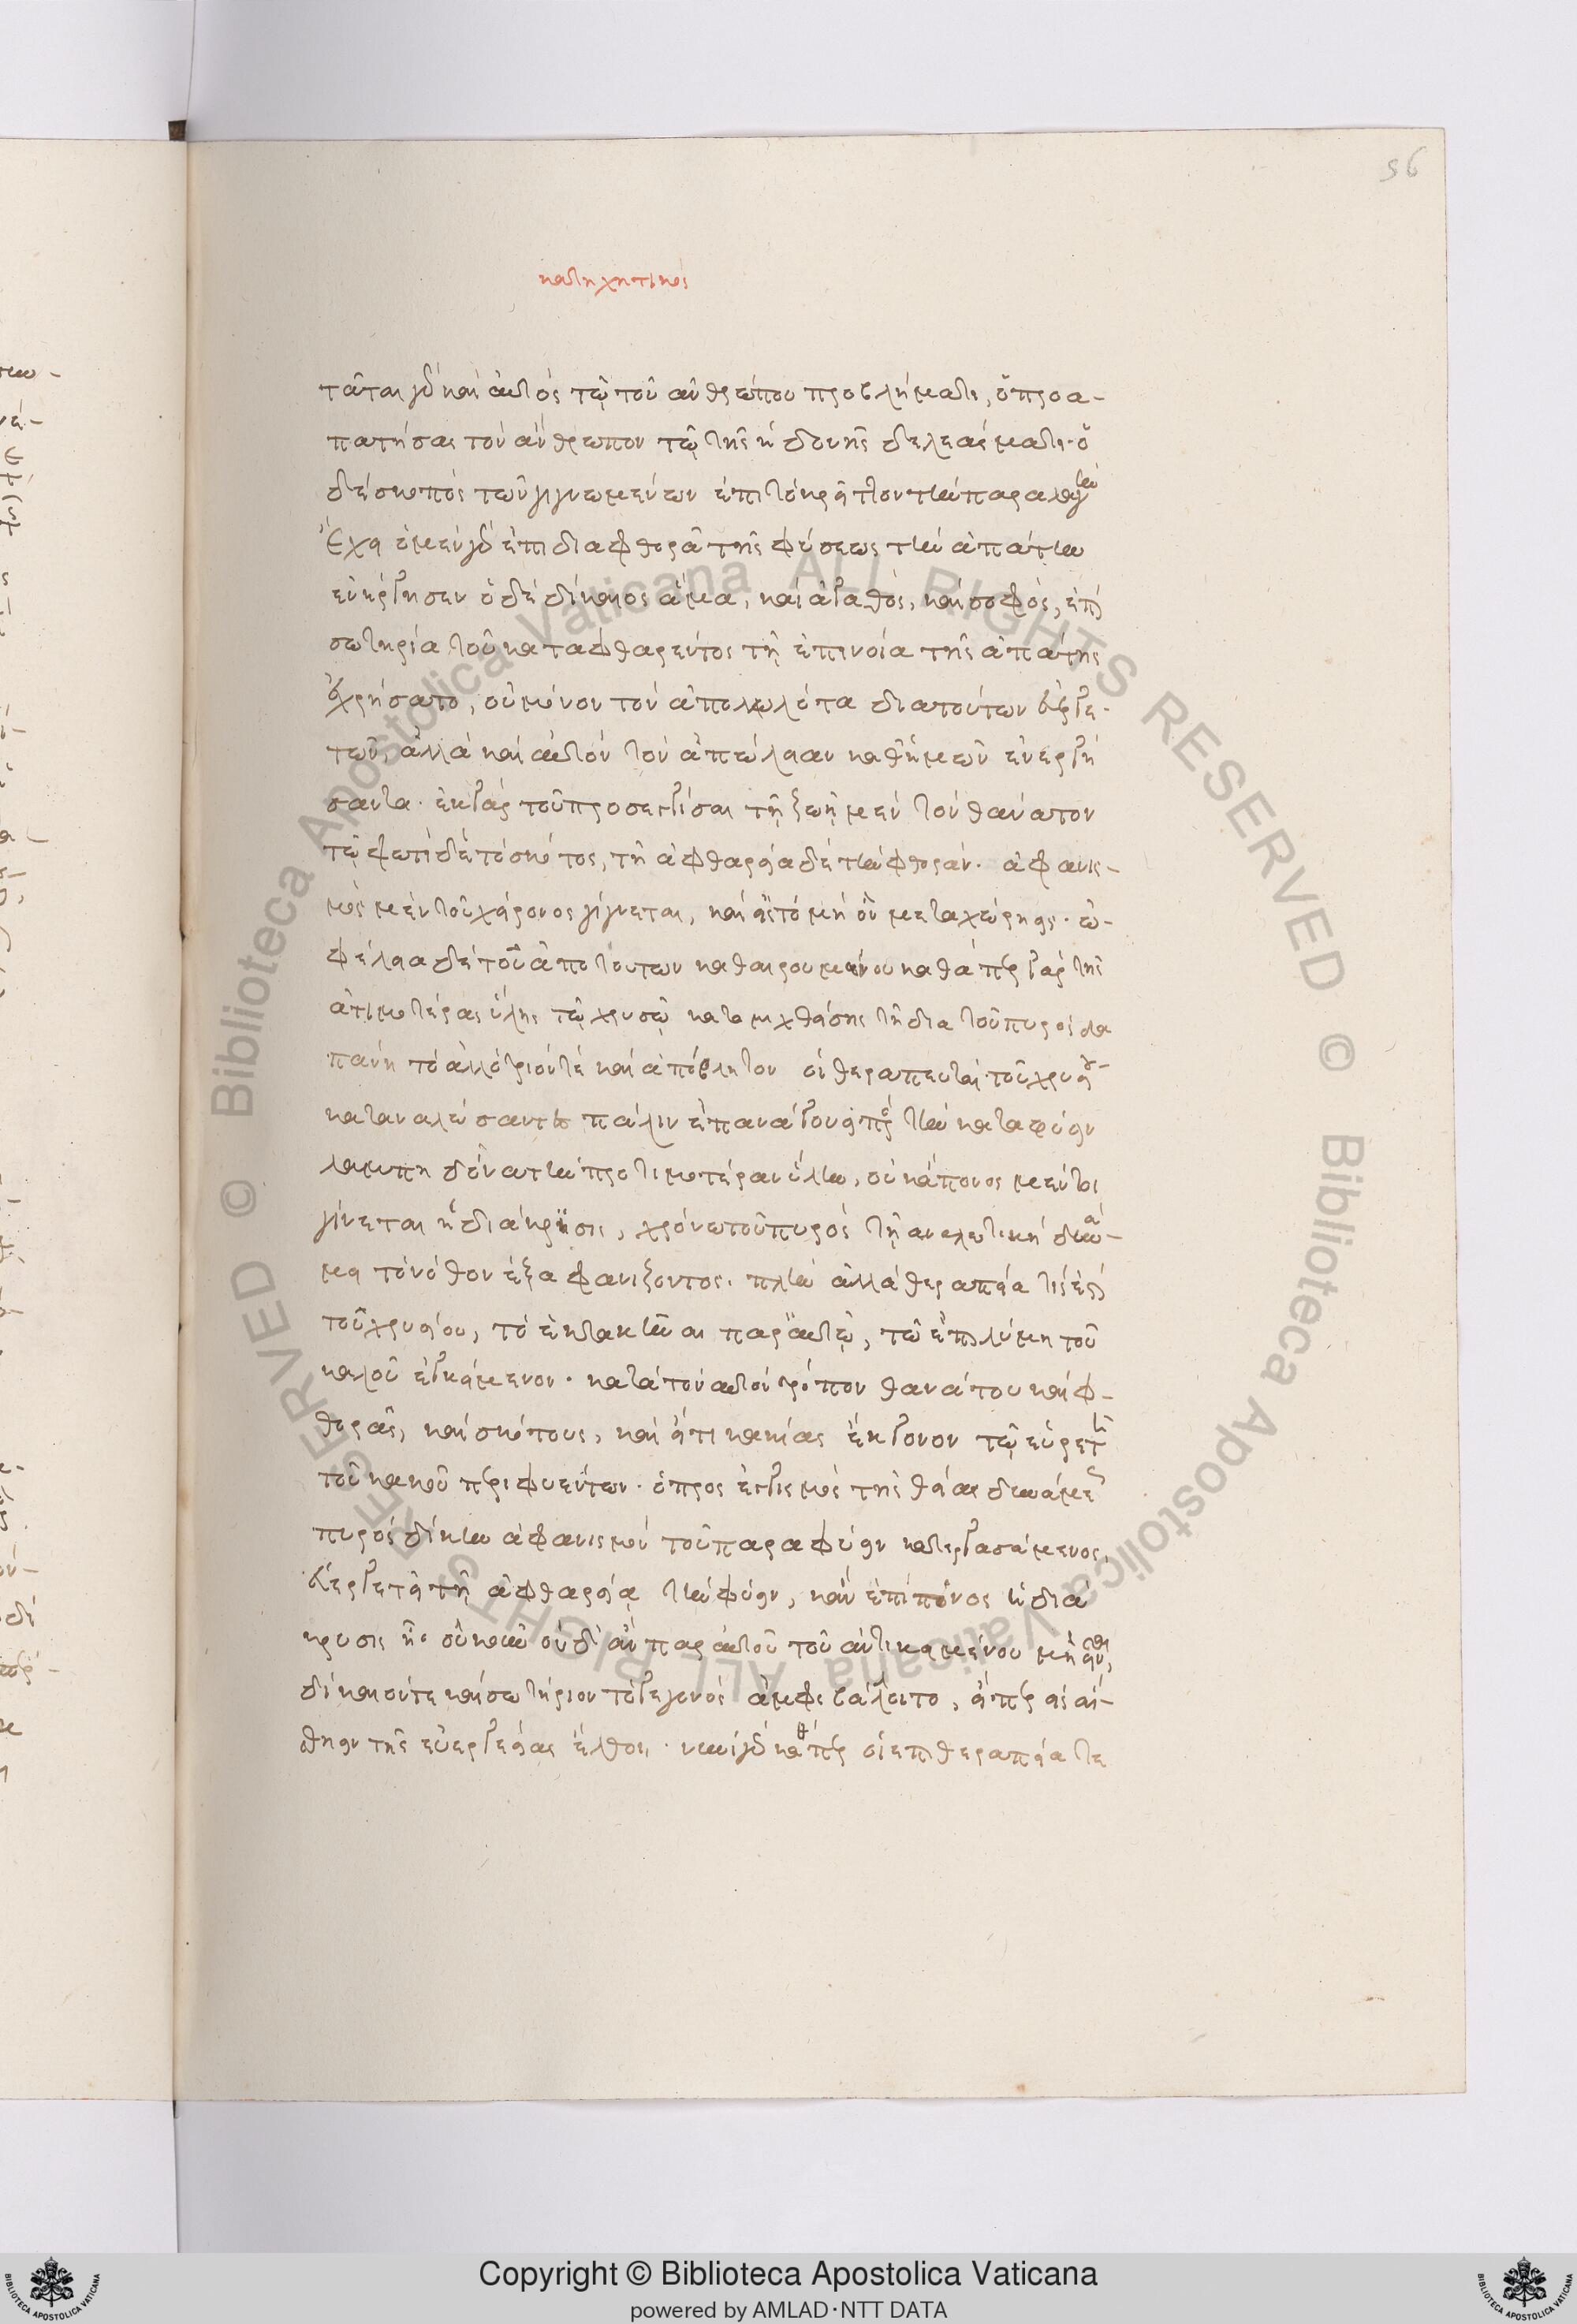 56
κατηχητικός
τᾶται γὰρ καὶ αὐτὸς τῷ τοῦ ἀνθρώπου προβλήματι, ὁ προα-
πατήσας τὸν ἄνθρωπον τῷ τῆς ἡδονῆς δελεάσματι· ὁ
δὲ σκοπὸς τῶν γιγνωμένων ἐπὶ τὸ κρεῖττον τὴν παραλλαγὴν
ἔχει ὁ μὲν γὰρ ἐπὶ διαφθορᾶ τῆς φύσεως τὴν ἀπάτην
ἐνήργησεν ὁ δὲ δίκαιος ἅμα, καὶ ἀγαθὸς, καὶ σοφὸς, ἐπὶ
σωτηρία τοῦ καταφθαρέντος τῇ ἐπινοία τῆς ἀπάτης
ἐχρήσατο, οὐ μόνον τὸν ἀπολωλότα διὰ τούτων εὐεργε-
τῶν, ἀλλὰ καὶ αὐτὸν τὸν ἀπώλειαν καθ' ἡμῶν ἐνεργή
σαντα· ἐκ γὰρ τοῦ προσεγγίσαι τῇ ζωῇ μὲν τὸν θάνατον
τῷ φωτὶ δὲ τὸ σκότος, τῇ ἀφθαρσία δὲ τὴν φθοράν· ἀφανισ-
μὸς μὲν τοῦ χείρονος γίγνεται, καὶ εἰς τὸ μὴ ὂν μεταχώρησις· ὠ-
φέλεια δὲ τοῦ ἀπὸ τούτων καθαιρουμένου καθάπερ γὰρ τῆς
ἀτιμοτέρας ὕλης τῷ χρυσῷ καταμιχθείσης τῇ διὰ τοῦ πυρὸς δα
πάνη τὸ ἀλλότριόν τε καὶ ἀπόβλητον οἱ θεραπευταὶ τοῦ χρυσίου
καταναλώσαντες πάλιν ἐπανάγουσι πρὸς τὴν κατὰ φύσιν
λαμπηδόνα τὴν προτιμοτέραν ὕλην, οὐκ ἄπονος μέντοι
γίνεται ἡ διάκρισις, χρόνω τοῦ πυρὸς τῇ ἀναλωτικῇ δυνά-
μει τὸ νόθον ἐξαφανίζοντος· πλὴν ἀλλὰ θεραπεία τίς ἐστι
τοῦ χρυσίου, τὸ ἐκτακῆναι παρ' αὐτῷ, τῶ ἐπὶ λύμη τοῦ
καλοῦ ἐγκείμενον· κατὰ τὸν αὐτὸν τρόπον θανάτου καὶ φ-
θορᾶς, καὶ σκότους, καὶ εἴτι κακίας ἔκγονον τῷ εὑρετῇ
τοῦ κακοῦ περιφυέντων· ὁ προσεγγισμὸς τῆς θείας δυνάμεως
πυρὸς δίκην ἀφανισμὸν τοῦ παρὰ φύσιν κατεργασάμενος,
εὐεργετεῖ τῇ ἀφθαρσίᾳ τὴν φύσιν, κἂν ἐπίπονος ἡ διά
κρυσις ἦ· οὐκοῦν οὐδ' ἂν παρ' αὐτοῦ τοῦ ἀντικειμένου μὴ εἶναι,
δίκαιόν τε καὶ σωτήριον τὸ γεγονὸς ἀμφιβάλοιτο, εἴπερ εἰς αἴ-
θησιν τῆς εὐεργεσίας ἔλθοι· νυνὶ γὰρ καθάπερ οἱ ἐπὶ θεραπεία τε